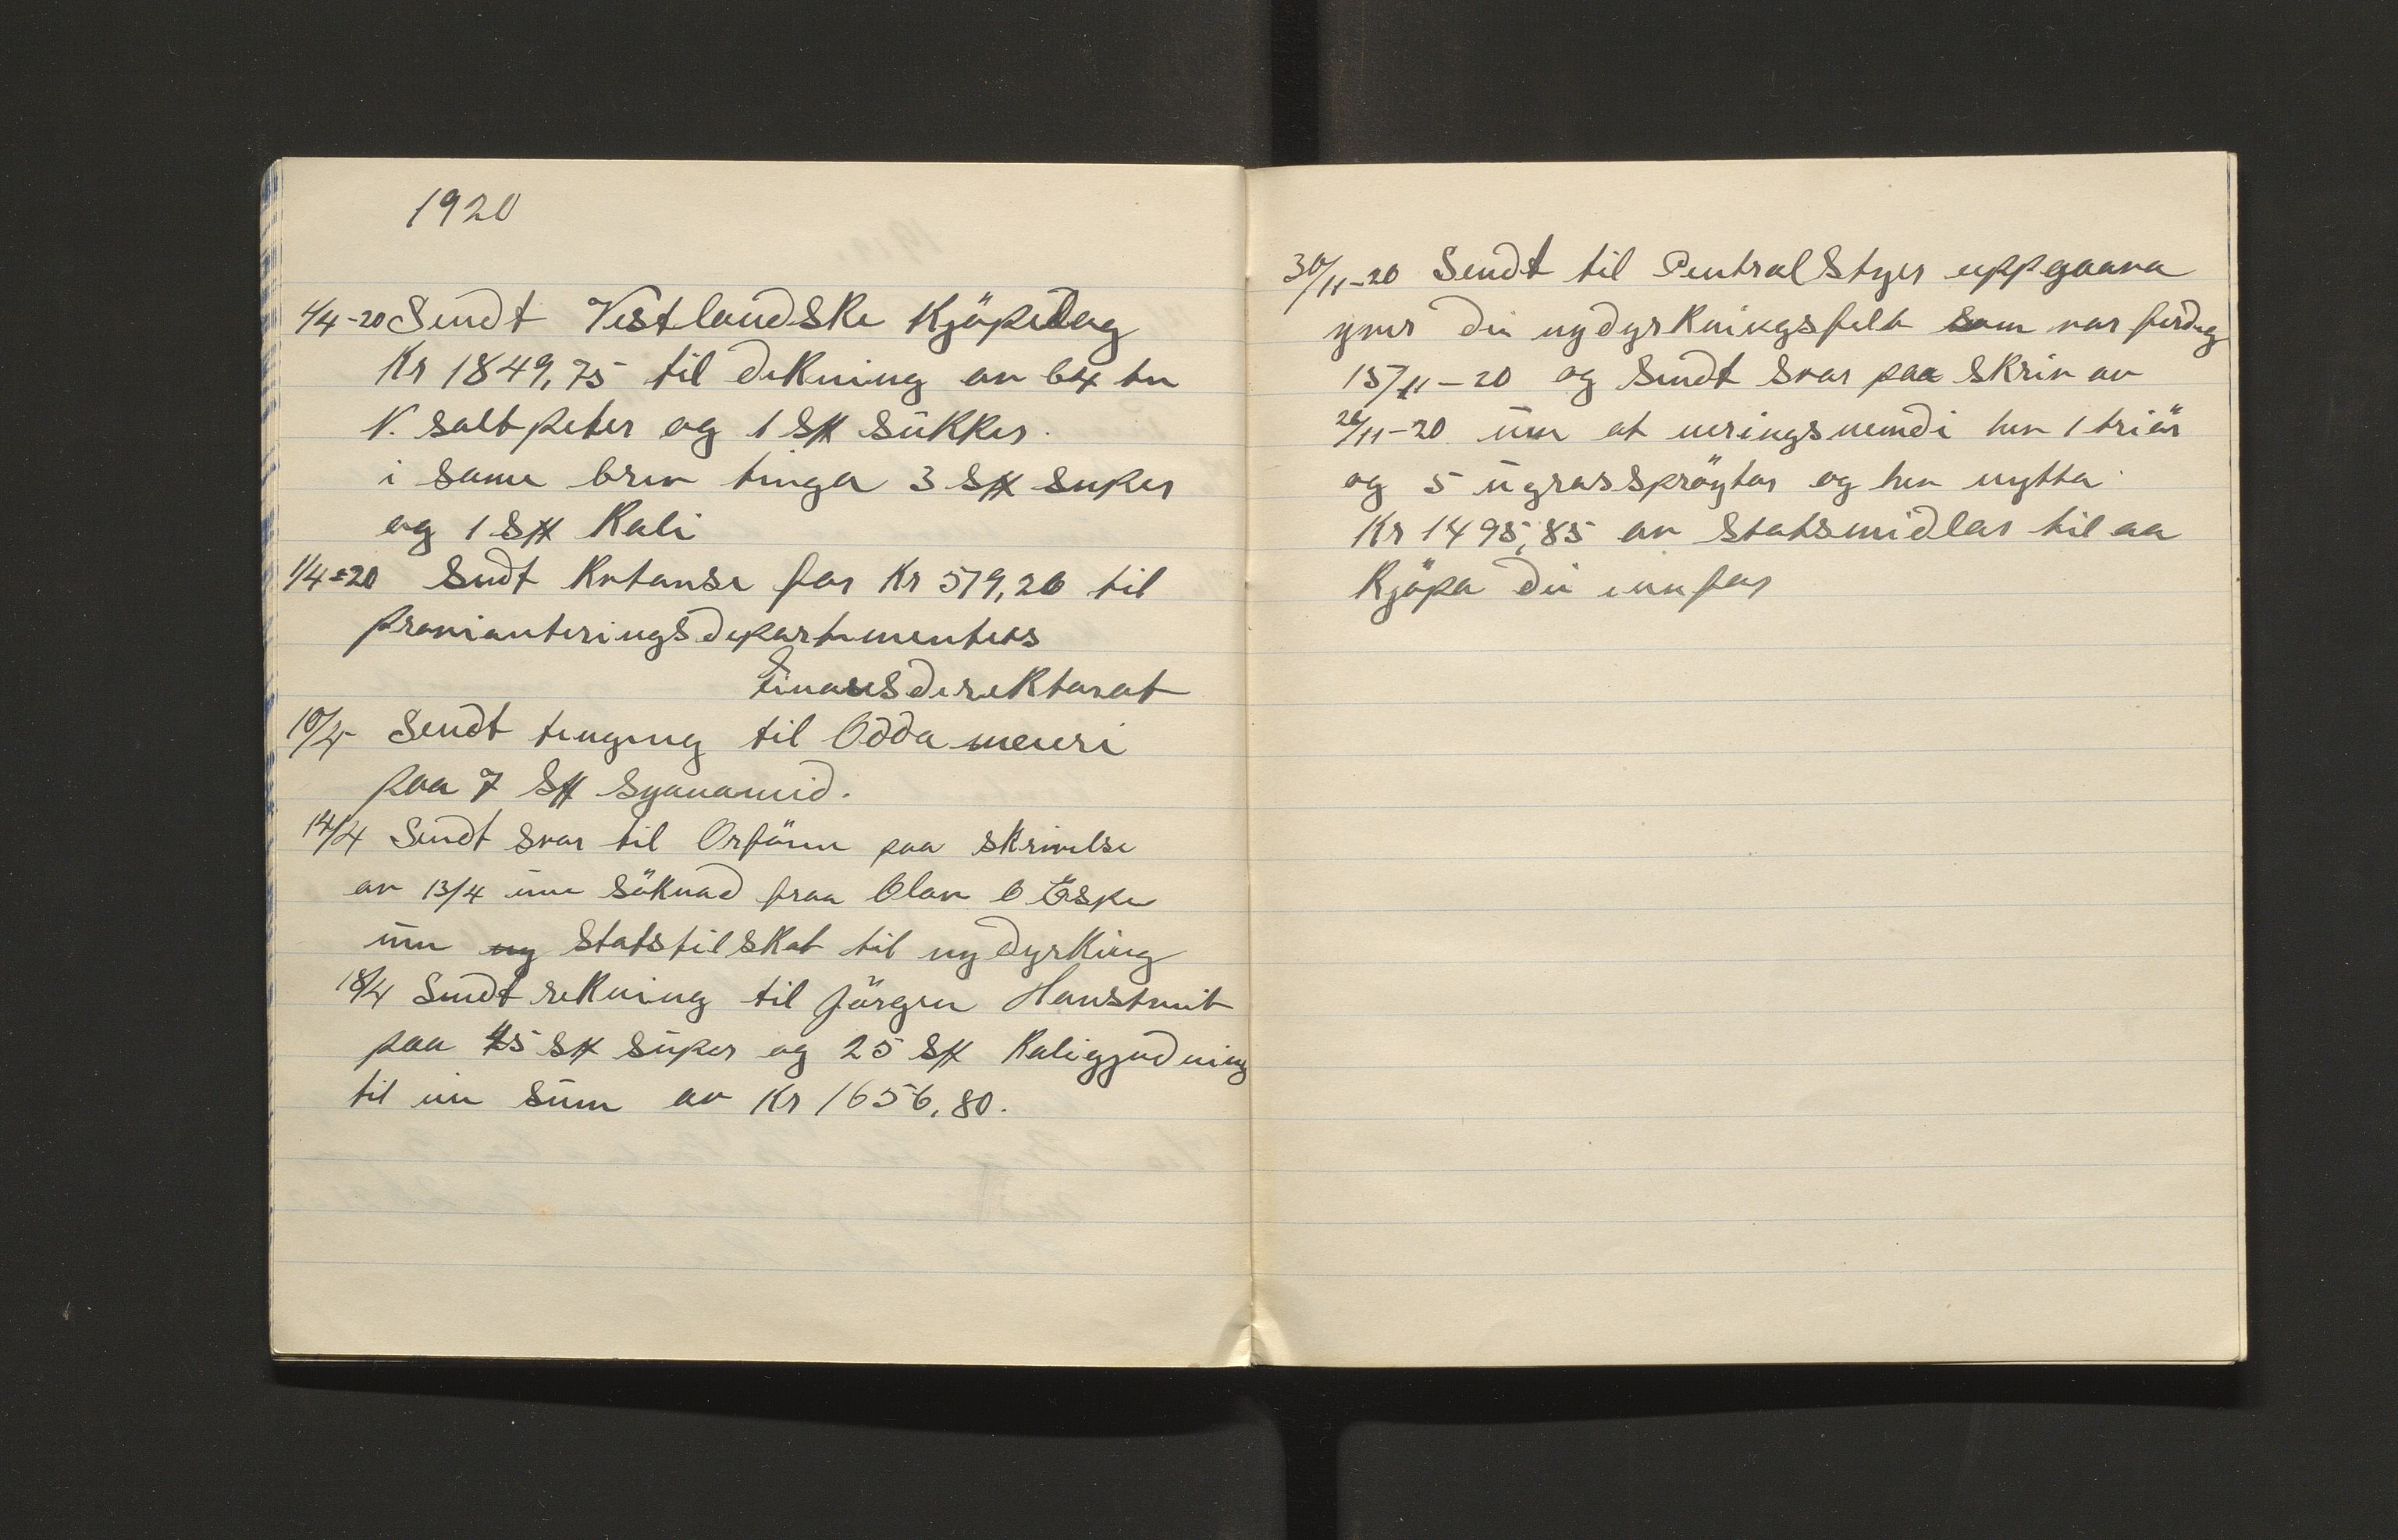 1920
1/4-20 Sendt Vestlandske Kjöpelag
Kr 1849,75 til dekning av 64 tn
N. saltpeter og 1 Sk sukker.
i same brev tinga 3 Sk super
og 1 Sk Kali
1/4=20 Sendt Kvtanse for Kr 519,20 til
provianteringsdepartementets
Finansdirektorat
10/4 Sendt tinging til Odda
paa 7 Sk Syanamid.
14/4 Sendt svar til Orföreren paa skrivelse
av 13/4 um söknad fraa Olav O Espe
um ny statstilskot til nydyrking
18/4 Sendt rekning til Jörgen
paa 45 Sk super og 25 Sk Kaligjødning
til ein sum av Kr 1656,80.
30/11-20 Sendt til Centralstyer uppgaava
yver dei nydyrkningsfelt som var ferdig
15/11-20 og sendt svar paa skriv av
26/11-20 um at neringsnemdi hev 1 triør
og 5 ugrassprøytar og hev nytta
Kr 1495,85 av statsmidlar til aa
Kjöpa dei inn for